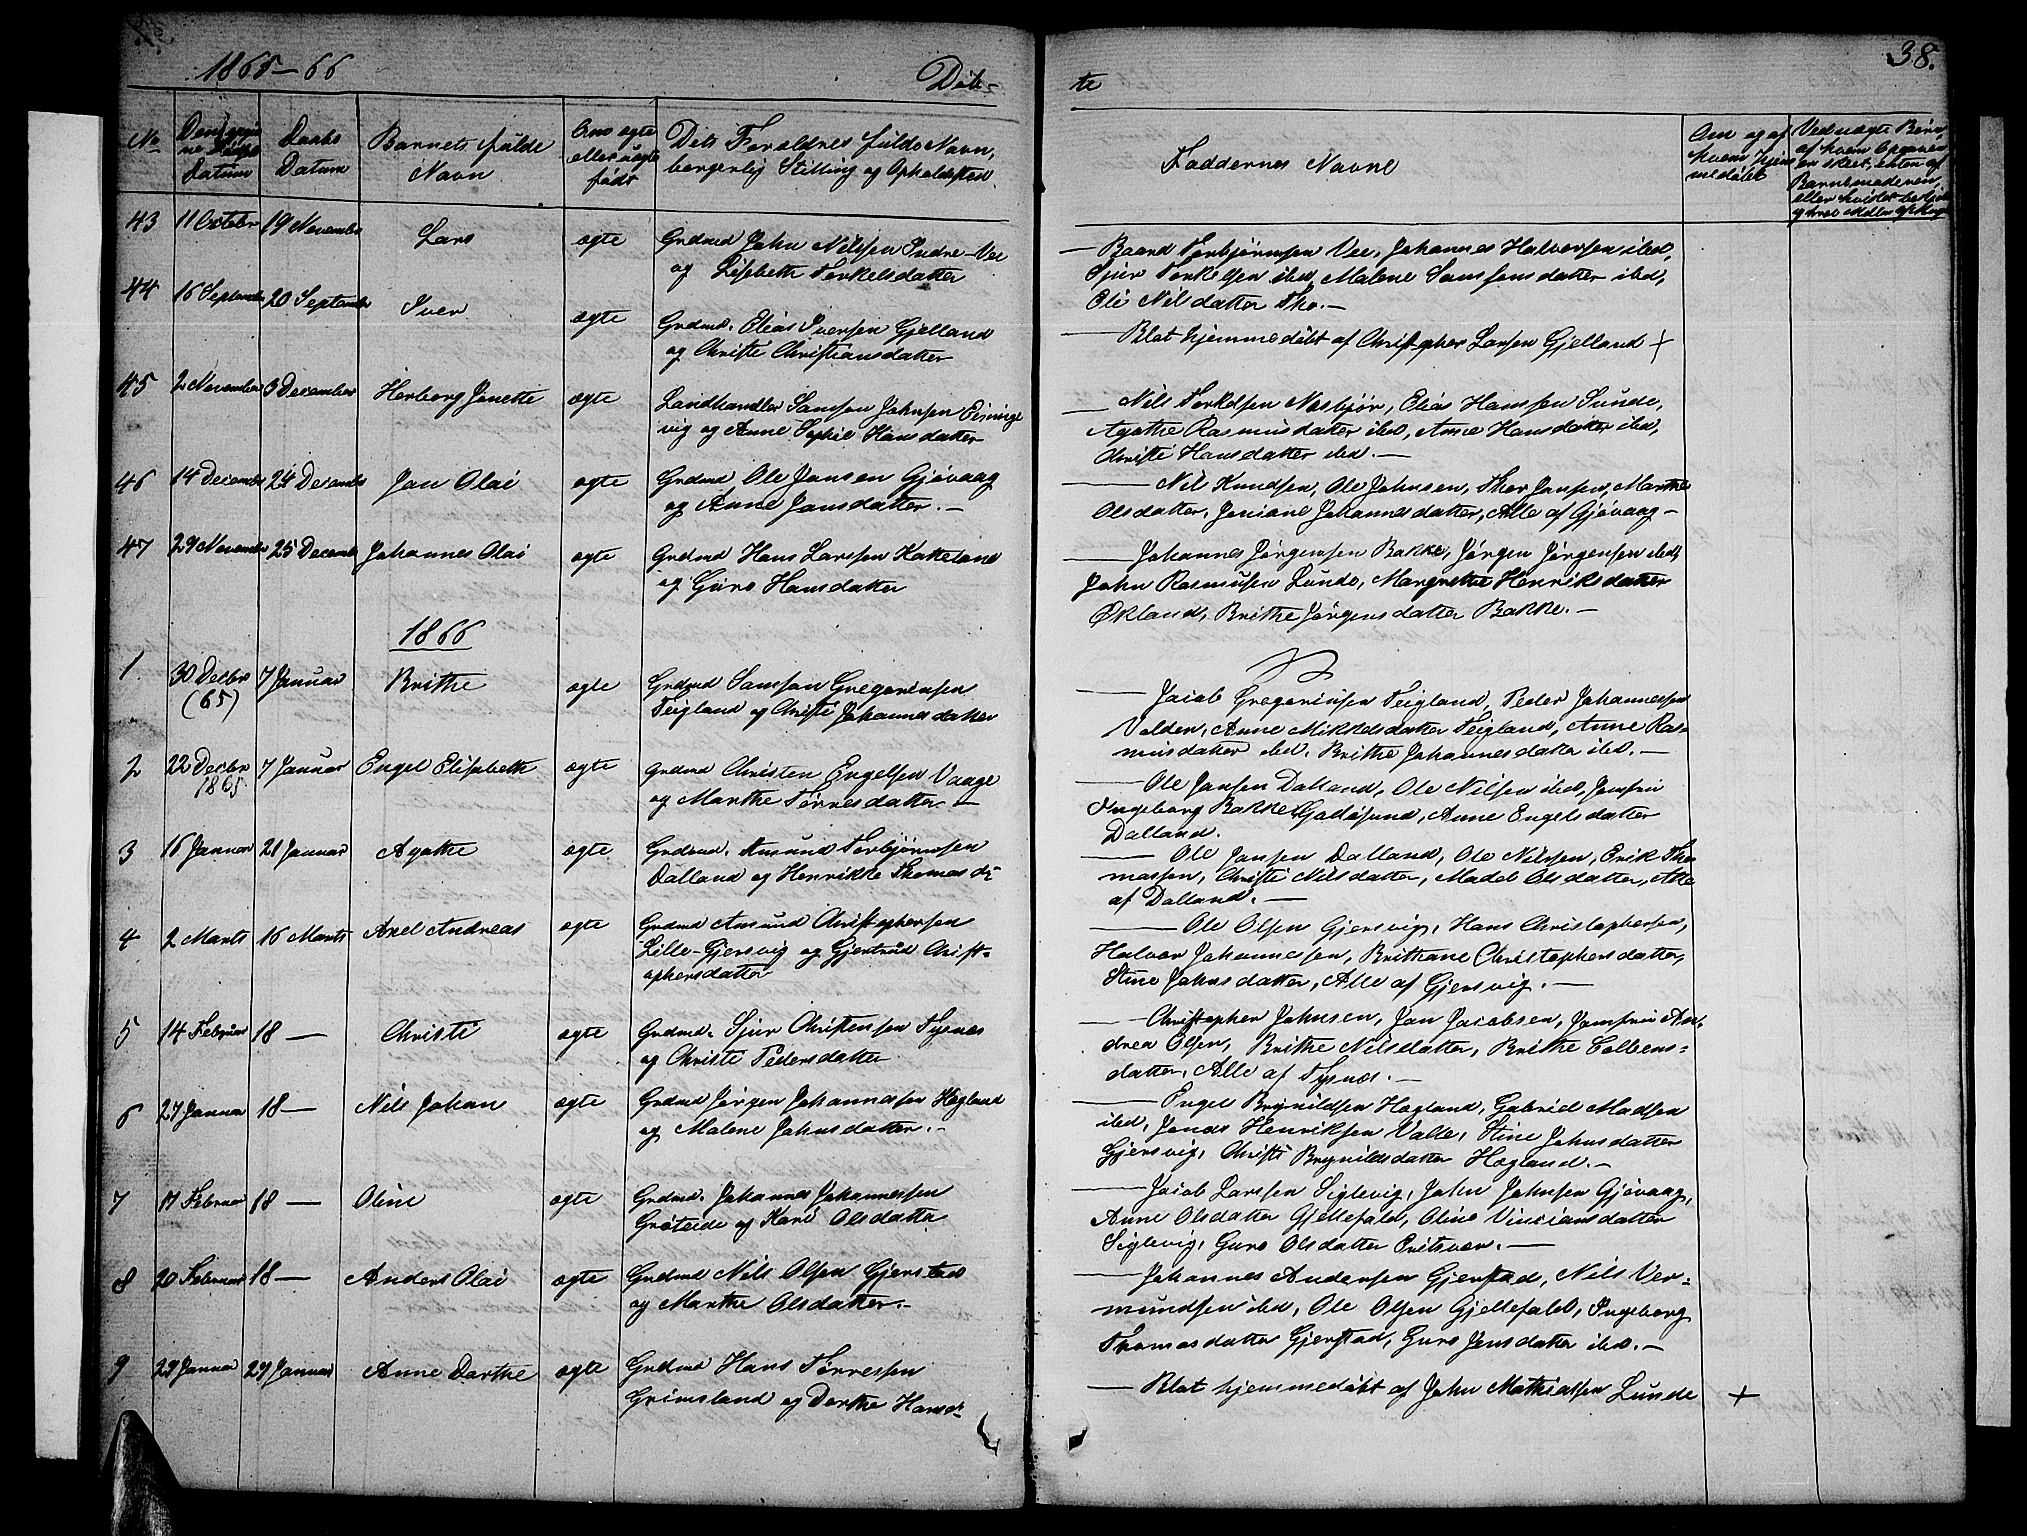 1865-66
Döb-
te
38.
No
Datum
Daabs
Datum
Barnets fulde
Navn
Om ægte
eller uægte
født
Dets Foraldres fulde Navn,
borgerlig Stilling og Opholdssted
Faddernes Navne
Om og af
hvem hjem
medøbt
43 11 October 19 November Lars ægte Grdmd John Nilssen Indre-Vee
og Lisbeth Torkelsdatter
— Baard Torbjørnsen Vee, Johannes Halvorsen ibd,
Sjur Torkelsen ibd, Malene Samsonsdatter ibd,
Oli Nilsdatter Tho.—
44 16 Septembr 20 Septembr Iver ægte Grdmd. Elias Iversen Gjelland
og Christi Christiansdatter
— Blot hjemmedøbt af Christopher Larsen Gjelland +
45 2 November 3 December Herborg Janette ægte Landhandler Samson Johnsen Eininge
vig og Anne Sophie Hansdatter
— Nils Torkelsen Nesbjør, Elias Hanssen Sunde,
Agathe Rasmusdatter ibd, Anne Hansdatter ibd,
Christi Hansdatter ibd.—
46 14 Decembr 24 Decembr Jan Olai ægte Grdmd Ole Jansen Gjøvaag
og Anne Jansdatter.—
— Nil Knudsen, Ole Johnsen, Thor Jansen, Marthe
Olsdatter, Johannesdatter, Alle af Gjøvaag—
47 29 Novembr 25 Decemb Johannes Olai ægte Grdmd Hans Larssen Kakeland
og Guro Hansdatter
— Johannes Jørgensen Bakke, Jørgen Jørgensen ibd,
John Rasmusen Lunde, Margrethe Henriksdatter
Økland, Brithe Jørgensdatter Bakke.—
1866
1. 30 Decbr 7 Januar Brithe ægte Grdmd Samson Gregoriusen
(65) Teigland og Christi Johannesdatter
— Jacob Gregoriusen Teigland, Peder Johannessen
Valden, Anne Mikkelsdatter Teigland, Anne Ras-
musdatter ibd. Brithe Johannesdatter ibd.—
2 22 Decbr 7 Januar Engel Elisabeth ægte Grdmd Christen Engelsen Vaage
1865. og Marthe Tørresdatter.—
— Ole Jansen Dalland, Ole Nilsen ibd, Jomfru
Ingeborg Bakke Godøsund, Anne Engelsdatter
Dalland.
3 16 Januar 21 Januar Agathe ægte Grdmd. Amund Torbjørnsen
Dalland og Henrikke Thomasd:
— Ole Jansen Dalland, Ole Nilssen, Erik Tho-
massen, Christi Nilsdatter, Madel Olsdatter, Alle
af Dalland.—
4 2 Marts 16 Marts Axel Andreas ægte Grdmd Amund Christophersen
Lille-Gjersvig og Gjertrud Christ-
ophersdatter
— Ole Olsen Gjersvig, Hans Christophersen,
Halvor Johannessen, Brithane Christophersdatter,
Stine Johnsdatter, Alle af Gjersvig.—
5 14 Februar 18 — Christi ægte Grdmd. Sjur Christensen Tysnes
og Christi Pedersdatter
— Christopher Johnsen, Jan Jacobsen, Jomfru An-
drea Olsen, Brithe Nilsdatter, Brithe Colbens-
datter, Alle af Tysnes.—
6 27 Januar 18 — Nils Johan ægte Grdmd Jørgen Johannessen Hægland
og Malene Johnsdatter.—
— Engel Brynildsen Hægland, Gabriel Madsen
ibd, Jonas Henriksen Valle, Stine Johnsdatter
Gjersvig, Christi Brynildsdatter Hægland.—
7 17 Februar 18 — Oline ægte Grdmd. Johannes Johannessen
Grøteide og Kari Olsdatter
— Jacob Larssen Siglevig, John Johnsen Gjøvaag,
Anne Olsdatter Gjellefald, Oline Vinciansdatter
Siglevig, Guro Olsdatter Eritsvær.—
8 20 Februar 18 — Anders Olai ægte Grdmd Nils Olsen Gjerstad
og Marthe Olsdatter.—
— Johannes Andersen Gjerstad, Nils Ver-
mundsen ibd, Ole Olsen Gjellefald, Ingeborg
Thomasdatter Gjerstad, Guro Jensdatter ibd.—
9 29 Januar 29 Januar Anne Dorthe ægte Grdmd Hans Tørresen
Grimsland og Dorthe Hansd:
— Blot hjemmedøbt af John Mathiassen Lunde +